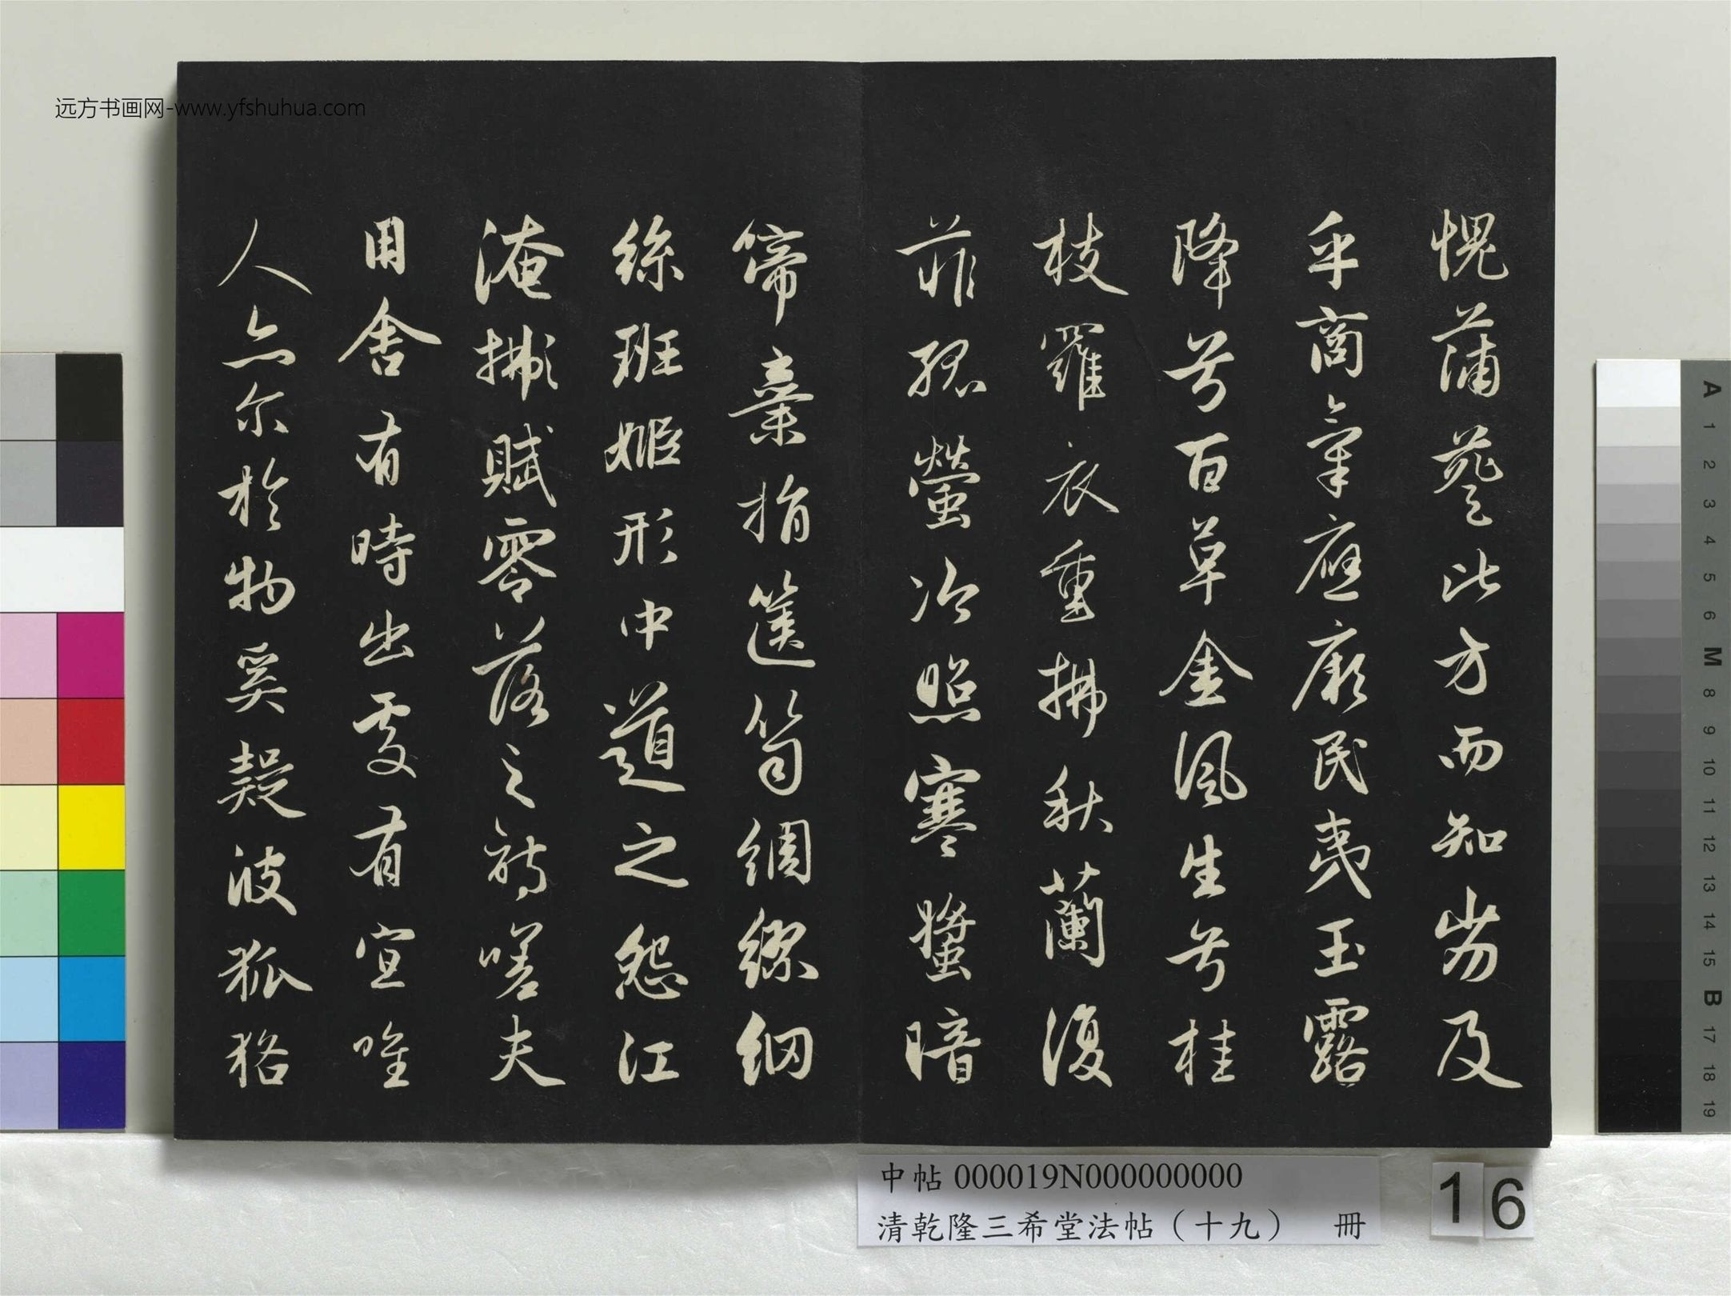 愧蒲葵比方而知劣及
乎商氣應厥民夷玉露
降兮百草金風生兮桂
枝羅衣重拂秋蘭復
菲孤螢冷照寒螀暗
啼棄捐篋笥綢繆網
絲班姬形中道之怨江
淹賦零落之詩嗟夫
用舍有時出處有宜唯
人亦尔於物奚疑彼狐狢
远方书画网-www.yfshuhua.com
中帖 000019N000000000
清乾隆三希堂法帖（十九） 冊
16
A 1 2 3 4 5 6 M 8 9 10 11 12 13 14 15 B 17 18 19